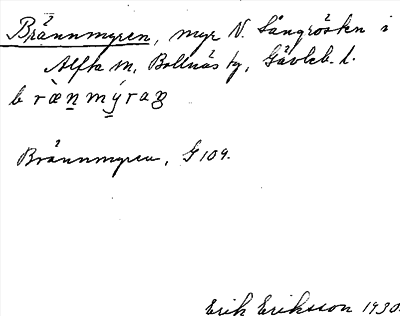 Brännmyren, myr N. Långrösten i
Alfta sn, Bollnäs tg, Gävleb. l.
brænmýraŋ
Brännmyren, G 109.
Erik Eriksson 1930.